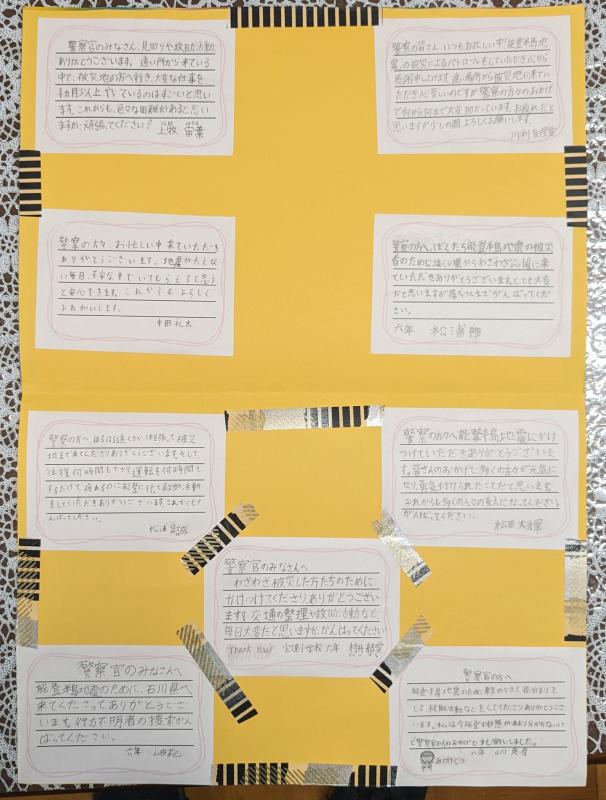 警察官のみなさん、見回りや救助活動、
ありがとうございます。遠い所から来ている
中で、被災地の方へ行き、大変な仕事を
1か月以上やているのはすごいと思い
ます。これからも、色々な困難があると思い
ますが、頑張ってください!
警察の皆さん いつもお忙しい中「能登半島地
震」の被災によるパトロールをしていただき心から
感謝申し上げます。遠い場所から被災地に来てい
ただき心苦しいのですが警察の方々のおかげ
で何から何まで大変助かっています。お疲れだと
思いますが少しの間よろしくお願いします。
警察の方々、お忙しい中来ていただき
ありがとうございます。地震がたえな
い毎日、不安な中で、いてもらえると思う
と安心できます。これからもよろしく
おねがいします。
警察の方へ、ぼくたち能登半島地震の被災
者のために遠くの県からわざわざ応援に来
ていただきありがとうございます。とても大変
だと思いますが落ちつくまでがんばってくださ
い。
六年 松浦 翔
警察の方へ、はるばる遠くから仕事を
地まで来てくださりありがとうございます。そして、
往復何時間もかかり、運転を何時間も
するだけで疲れるのに能登に行って救助活動
をしていただきありがとうございます。これからもが
んばってください。
松浦
警察の方々へ能登半島地震にかけ
つけていただきありがとうございま
す。皆さんのおかげで多くの方々が元気に
なり、勇気付けられたことだと思います。
これからも多くの人々の支えになってください。
がんばってください。
松田
警察官のみなさんへ
わざわざ被災した方たちのために
かけつけてくださり、ありがとうござい
ます!交通の整理や救助活動など、
毎日大変だと思いますが、がんばってください!
Thank You! 宝達小学校六年 村井
警察官のみなさんへ
能登半島地震のために、石川県へ
来てくださってありがとうござ
います。行方不明者の捜索がん
ばってください。
六年 山田
警察官の方へ
能登半島地震のため、東京からきて宿泊まで
して救助活動などをしてくださりありがとうござ
います。私は今能登の状態があまり分からないけ
ど「警察官の方のおかげで」
六年 山口
ありがとう